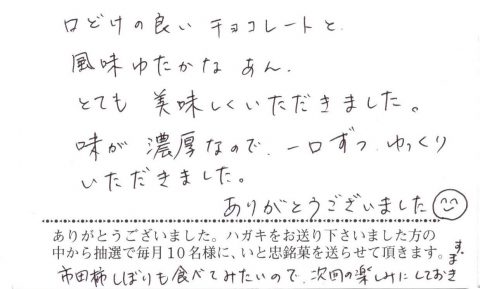 口どけの良い チョコレートと
風味ゆたかな あん、
とても 美味しくいただきました。
味が 濃厚なので、一口ずつ ゆっくり
いただきました。
ありがとうございました
ありがとうございました。ハガキをお送り下さいました方の
中から抽選で毎月10名様に、いと忠銘菓を送らせて頂きます。
市田柿しぼりも食べてみたいので、次回の楽しみにしておき
ます。